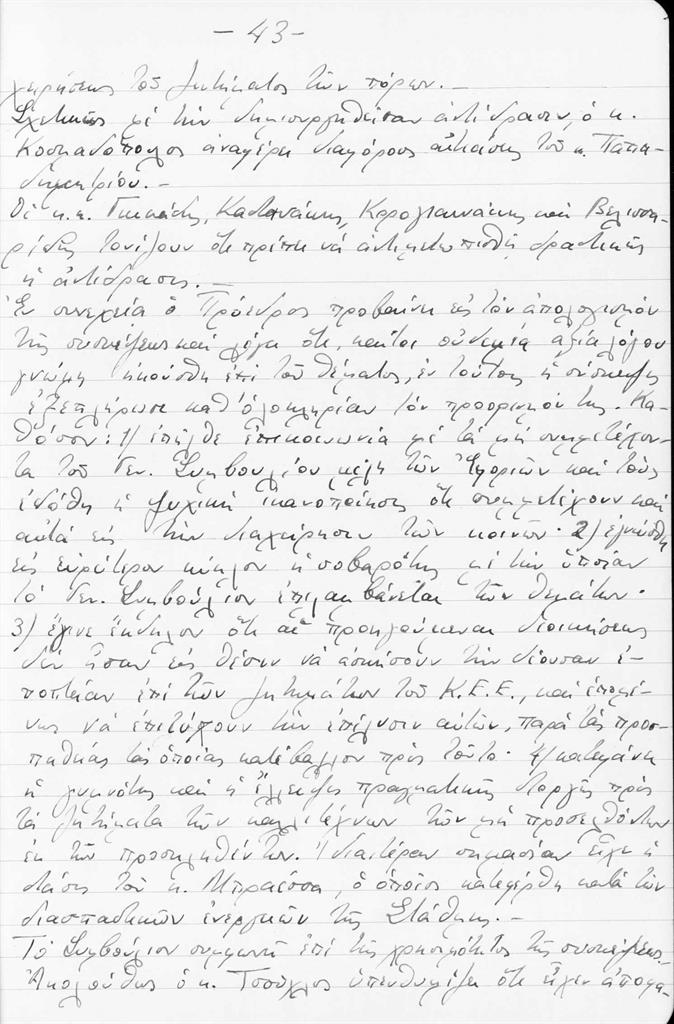 -43-
χειρήσεως τοῦ ζητήματος τῶν πόρων.-
Σχετικῶς μέ τήν δημιουργηθεῖσαν ἀντίδρασιν, ὁ κ.
Κοσμαδόπουλος ἀναφέρει διαφόρους αἰτιάσεις τοῦ κ. Παπα-
δημητρίου.-
Οἱ κ.κ. Καστανάκης, Καρογιαννάκης καί Βελισσα-
ρίδης τονίζουν ὅτι πρέπει νά ἀντιμετωπισθῇ δραστικῶς
ἡ ἀντίδρασις.-
Ἐν συνεχείᾳ ὁ Πρόεδρος προβαίνει εἰς τόν ἀπολογισμόν
τῆς συσκέψεως καί λέγει ὅτι, καίτοι οὐδεμία ἀξία λόγου
γνώμη ἠκούσθη ἐπί τοῦ θέματος, ἐν τούτοις ἡ σύσκεψις
ἐξεπλήρωσε καθ' ὁλοκληρίαν τόν προορισμόν της. Κα-
θόσον: 1) ἐπῆλθε ἐπικοινωνία μέ τά μή συμμετέχον-
τα τοῦ Γεν. Συμβουλίου μέλη τῶν Ἐφοριῶν καί τούς
ἐδόθη ἡ ψυχική ἱκανοποίησις ὅτι συμμετέχουν καί
αὐτά εἰς τήν διαχείρησιν τῶν κοινῶν· 2) ἐγνώσθη
εἰς εὐρύτερον κύκλον ἡ σοβαρότης μέ τήν ὁποίαν
τό Γεν. Συμβούλιον ἐπιλαμβάνεται τῶν θεμάτων·
3) ἔγινε ἔκδηλον ὅτι αἱ προηγούμεναι διοικήσεις
δέν ἦσαν εἰς θέσιν νά ἀσκήσουν τήν δέουσαν ἐ-
ποπτείαν ἐπί τῶν ζητημάτων τοῦ Κ.Ε.Ε., καί ἑπομέ-
νως νά ἐπιτύχουν τήν ἐπίλυσιν αὐτῶν, παρά τάς προσ-
παθείας τάς ὁποίας κατέβαλλον πρός τοῦτο· 4) κατεφάνη
ἡ γυμνότης καί ἡ ἔλλειψις πραγματικῆς στοργῆς πρός
τά ζητήματα τῶν καλλιτέχνων τῶν μή προσελθόντων
ἐκ τῶν προσκληθέντων. Ἰδιαιτέραν σημασίαν εἶχε ἡ
στάσις τοῦ κ. Μπραέσσα, ὁ ὁποῖος κατεφέρθη κατά τῶν
διασπαστικῶν ἐνεργειῶν τῆς Στάθμης.-
Τό Συμβούλιον συμφωνεῖ ἐπί τῆς χρησιμότητος τῆς συσκέψεως.
Ἀκολούθως ὁ κ. Τσούχλος ὑπενθυμίζει ὅτι εἶχεν ἀποφα-